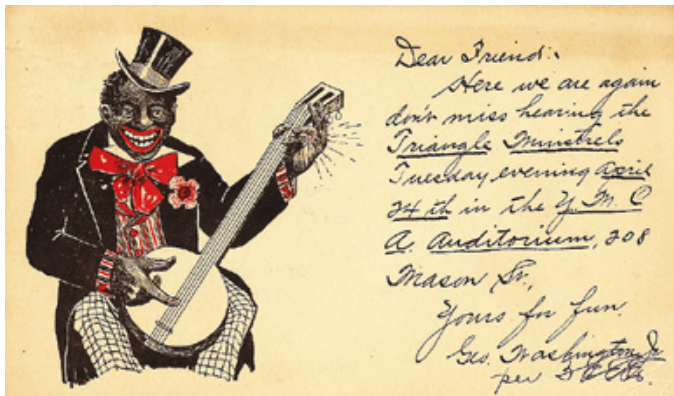 Dear Friend:-
Here we are again
don't miss hearing the
Triangle Minstrels
Tuesday evening April
24th in the Y. M. C
A. Auditorium, 208
Mason St.,
Yours for fun.
Geo. Washington, Jr
per